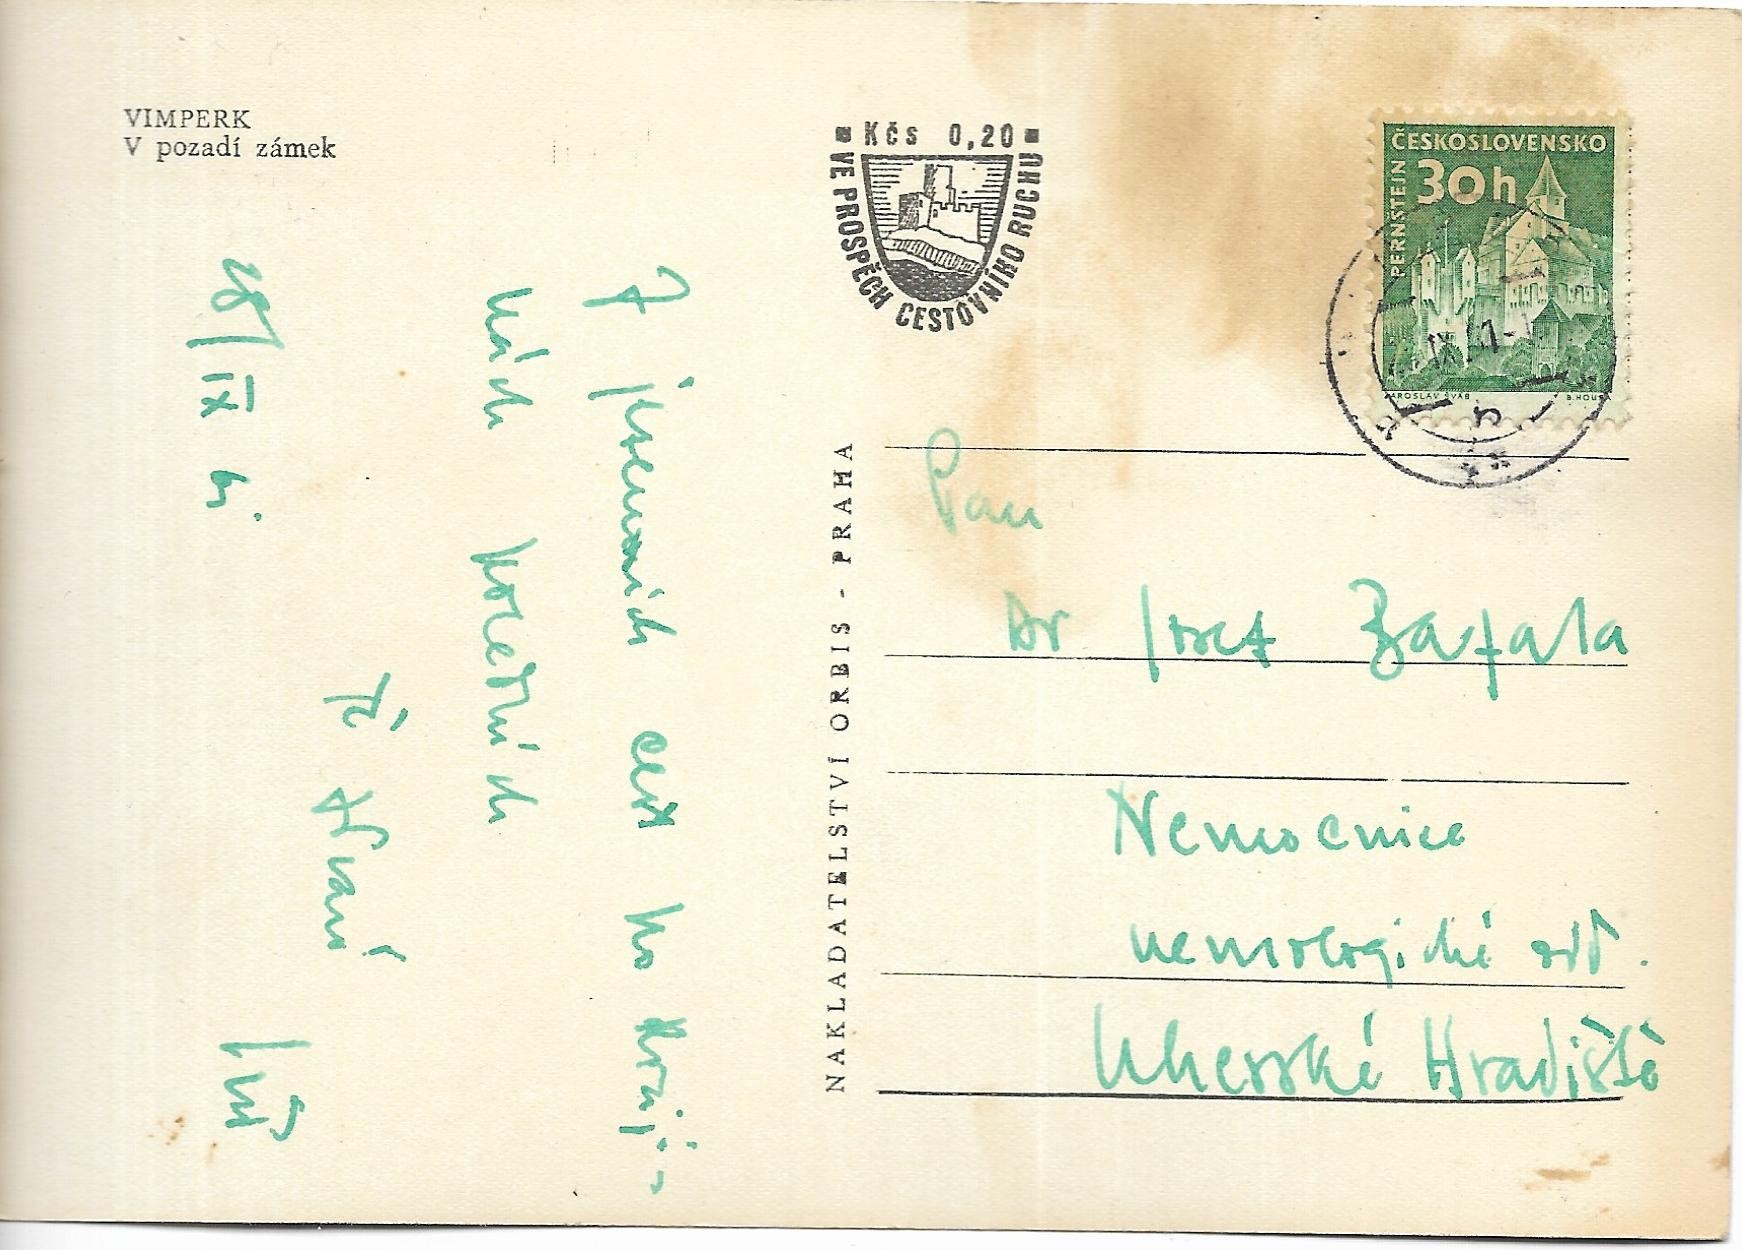 VIMPERK
V pozadí zámek
Kčs 0,20
VE PROSPĚCH CESTOVNÍHO RUCHU
ČESKOSLOVENSKO
30h
PERNŠTEJN
JAROSLAV ŠVÁB B. HOUSA
NAKLADATELSTVÍ ORBIS - PRAHA
Z jesenních cest po kraji-
nách
Tě zdraví
28/IX 61
Pan
Dr Josef Zapala
Nemocnice
neurologické odd.
Uherské Hradiště